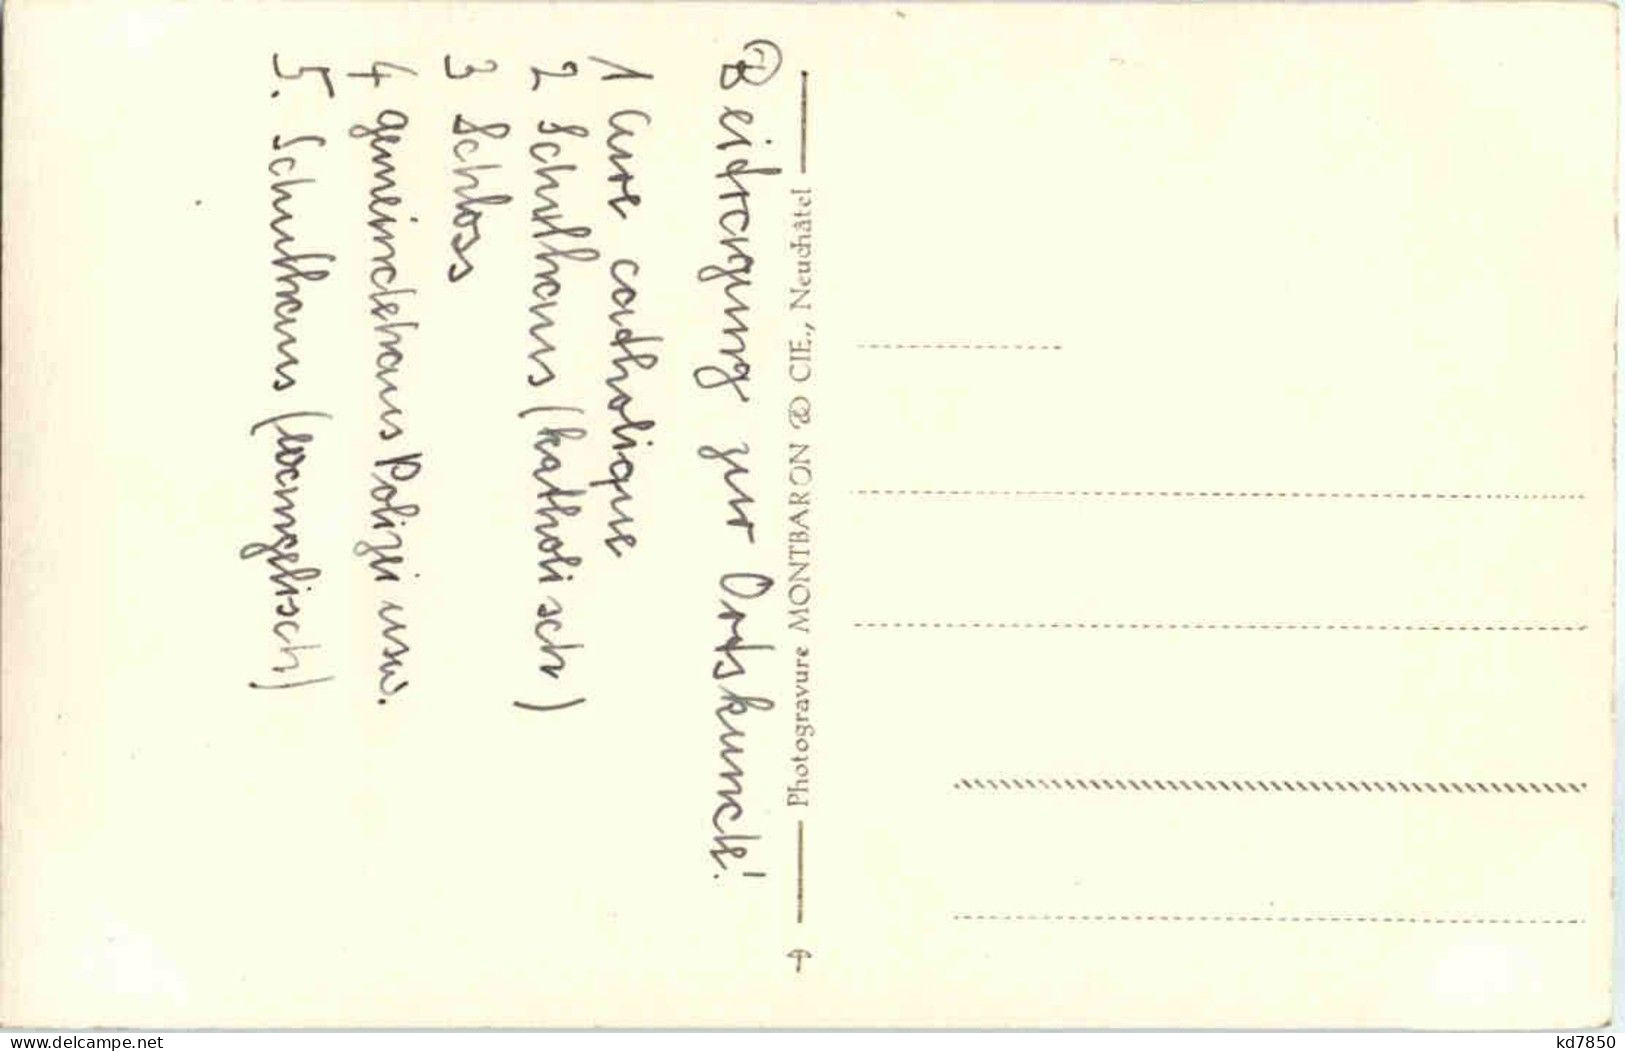 Beitragung zur Ortskunde!
1 Cure catholique
2 Schulhaus (katholisch)
3 Schloss
4 gemeindehaus Polizei usw.
5. Schulhaus (evangelisch)
Photogravure MONTBARON & CIE., Neuchâtel
www.delcampe.net
kd7850